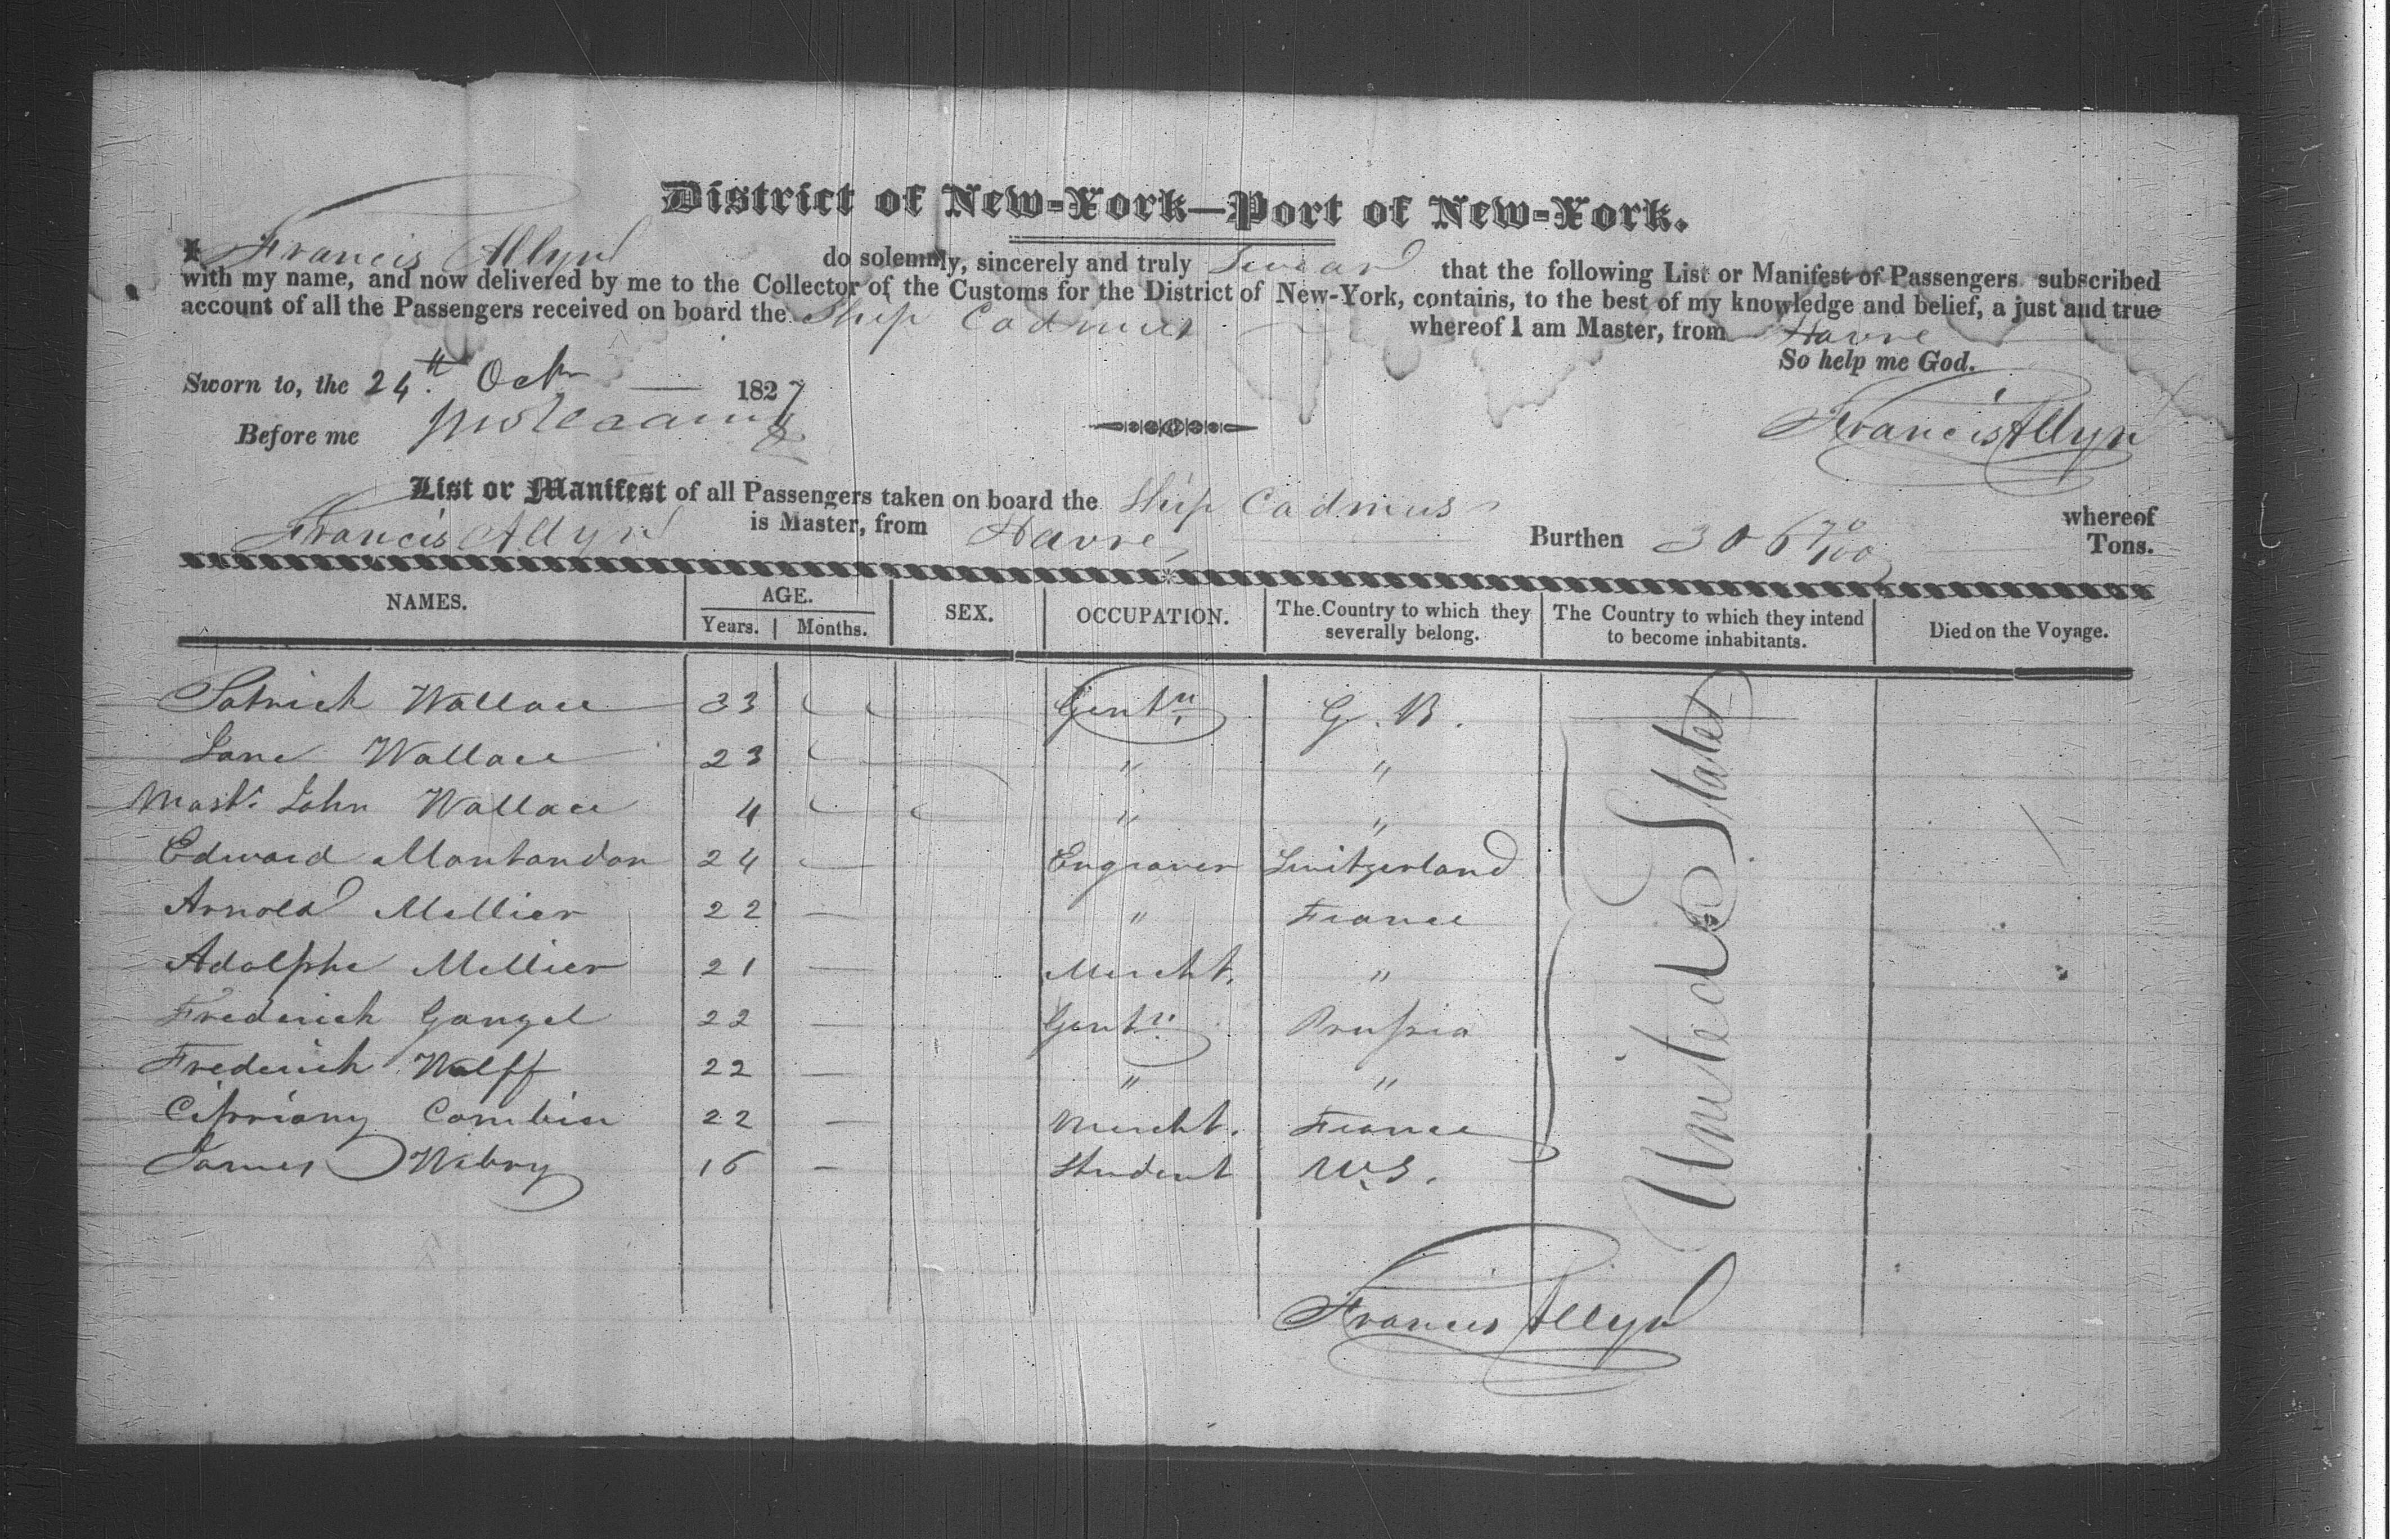 District of New-York—Port of New-York.
I Francis Allyn do solemnly, sincerely and truly Swear that the following List or Manifest of Passengers subscribed
with my name, and now delivered by me to the Collector of the Customs for the District of New-York, contains, to the best of my knowledge and belief, a just and true
account of all the Passengers received on board the Ship Cadmus whereof I am Master, from Havre
So help me God.
Sworn to, the 24th Octr 1827
Before me
Francis Allyn
List or Manifest of all Passengers taken on board the Ship Cadmus whereof
Francis Allyn is Master, from Havre, Burthen 306 70/100 Tons.
NAMES. AGE. SEX. OCCUPATION. The Country to which they severally belong. The Country to which they intend to become inhabitants. Died on the Voyage.
Years. Months.
Patrick Wallace 33 Gentn G. B.
Jane Wallace 23 " "
Mastr John Wallace 4 " "
Edward Montandon 24 — Engraver Switzerland
Arnold Mellier 22 — " France
Adolphe Mellier 21 — Mercht. "
Frederick Gangel 22 — Gentn Prussia
Frederick Wolff 22 — " "
Cipriany Combin 22 — Mercht. France
James 16 — Student U.S.
United States
Francis Allyn